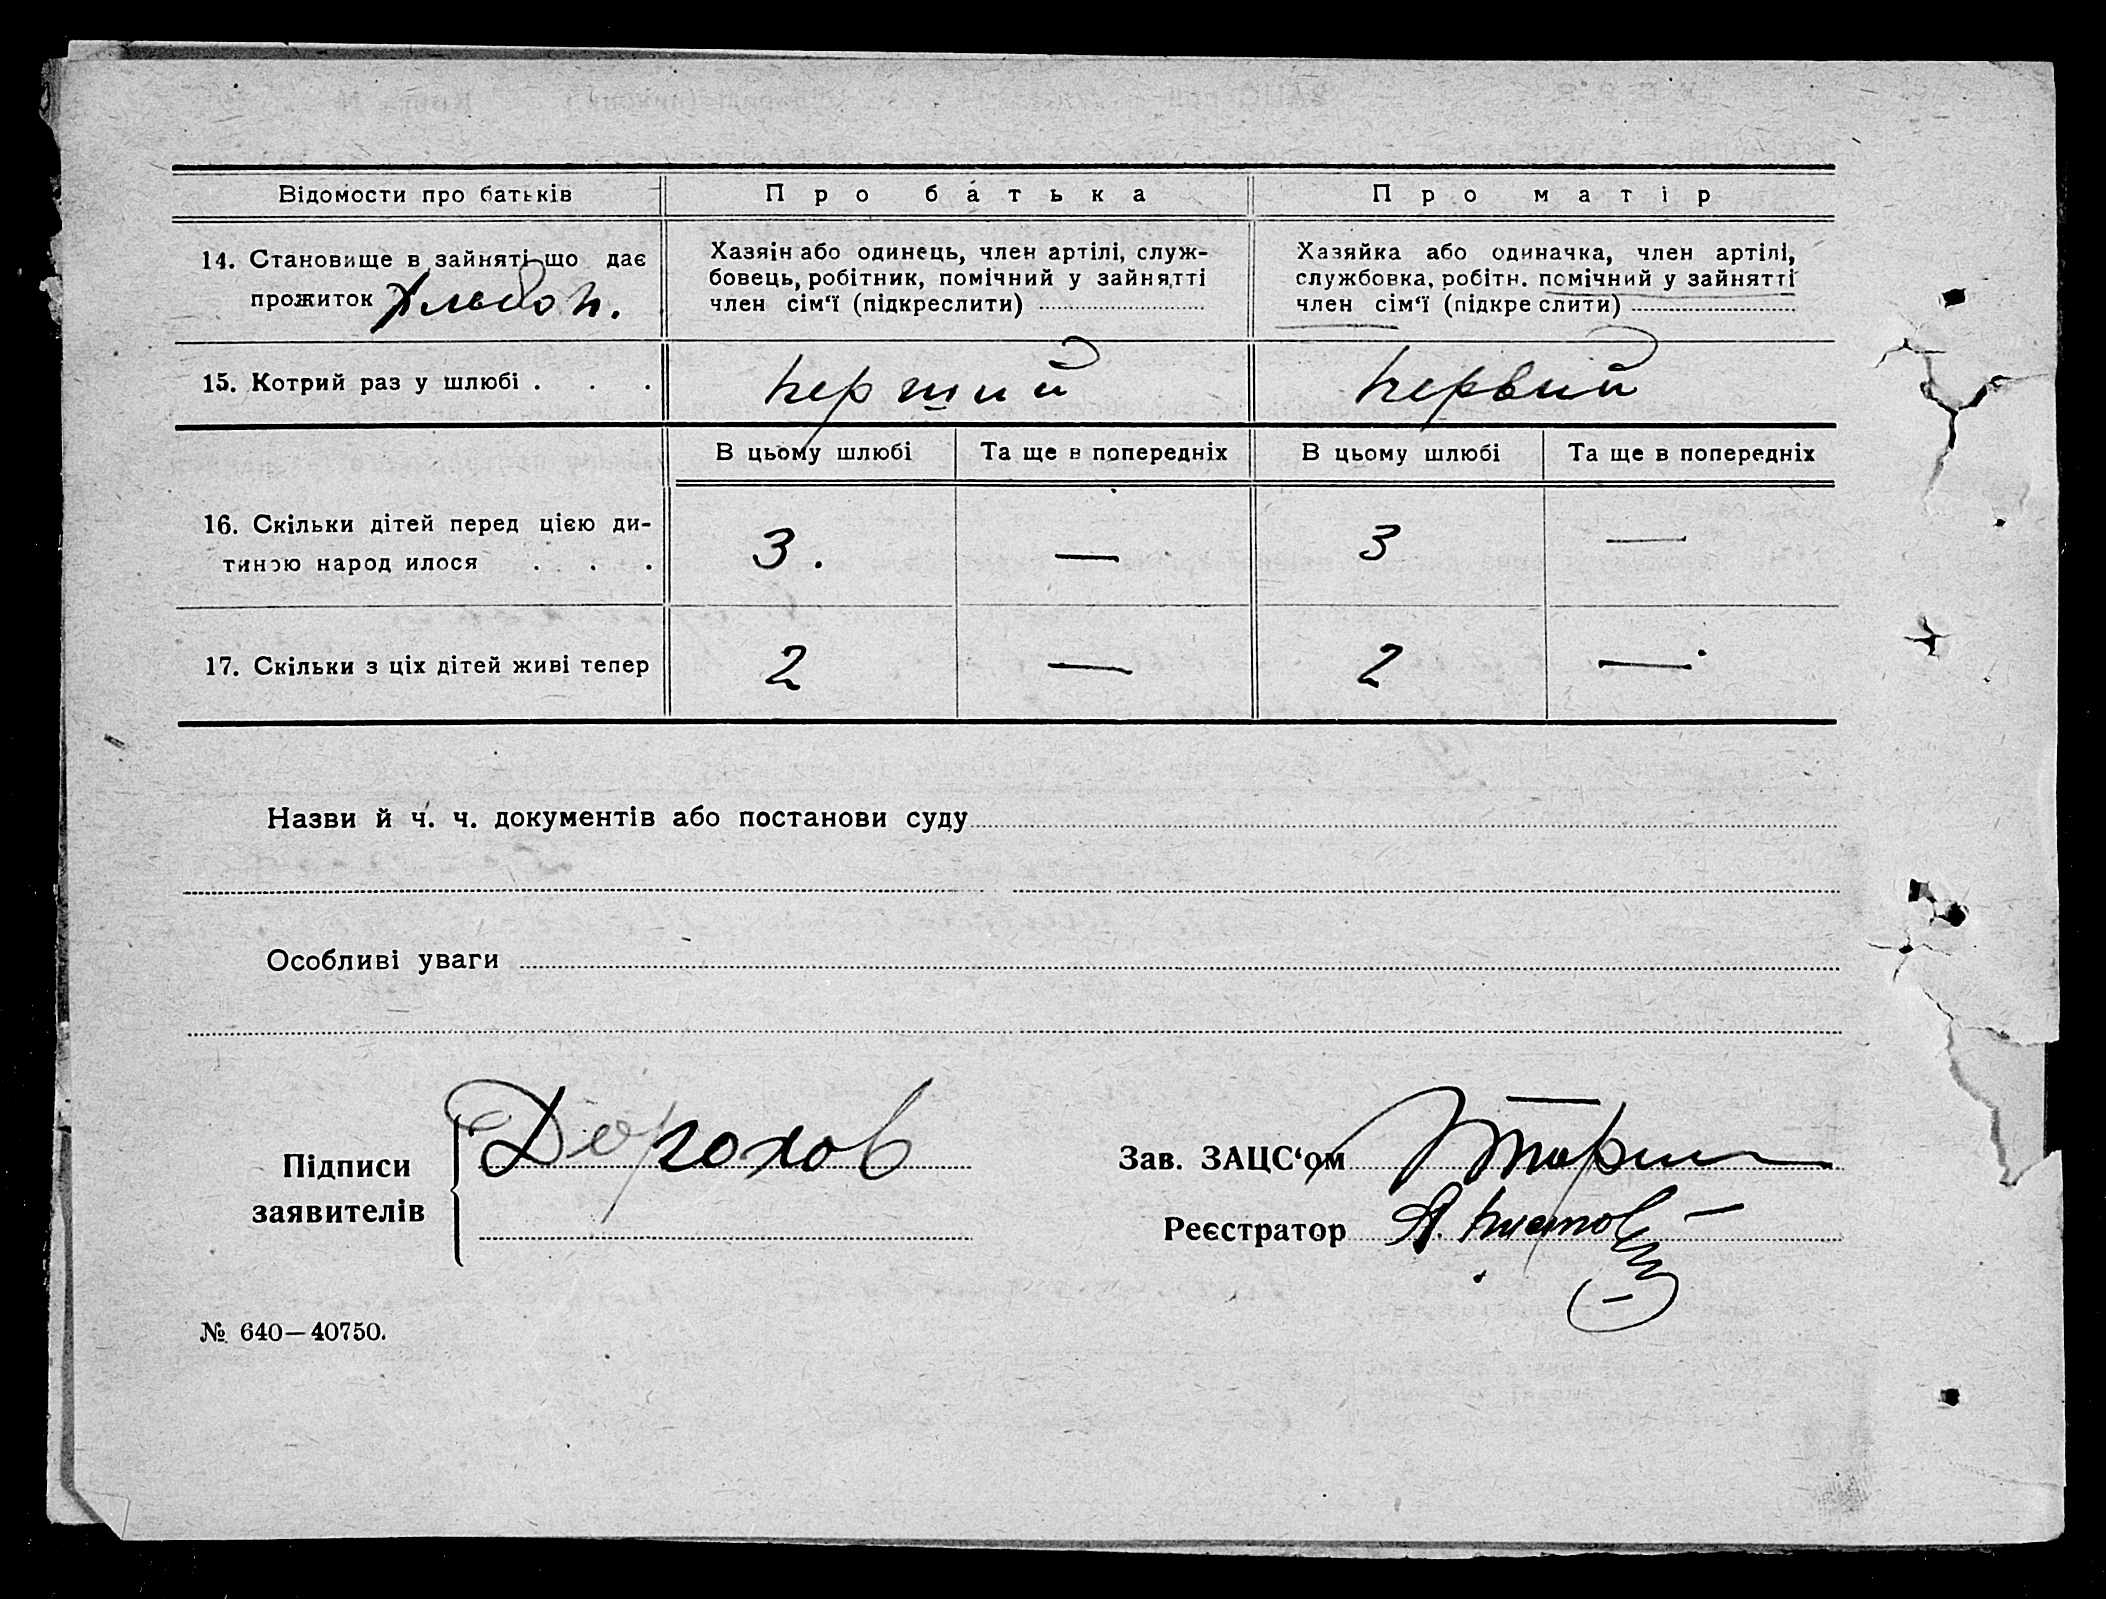 Відомости про батьків
Про батька
Про матір
14. Становище в зайняті що дає
прожиток Хлібон.
Хазяін або одинець, член артілі, служ-
бовець, робітник, помічний у зайнятті
член сім‘ї (підкреслити)
Хазяйка або одиначка, член артілі,
службовка, робітн. помічний у зайнятті
член сім‘ї (підкре слити)
15. Котрий раз у шлюбі . . .
перший
первий
В цьому шлюбі
Та ще в попередніх
В цьому шлюбі
Та ще в попередніх
16. Скільки дітей перед цією ди-
тиною народ илося . . .
3.
—
3
—
17. Скільки з ціх дітей живі тепер
2
—
2
—
Назви й ч. ч. документів або постанови суду
Особливі уваги
Підписи
заявителів
Дорохов
Зав. ЗАЦС‘ом
Реєстратор
№ 640—40750.